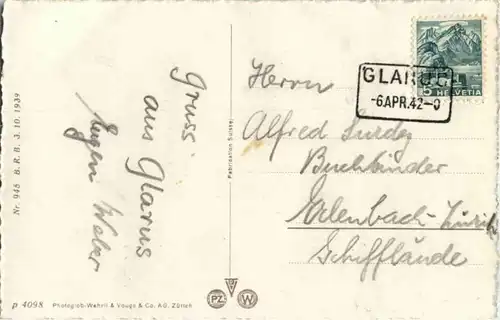 Gruss
aus Glarus
Eugen Weber
Herrn
Alfred
Buchbinder
Erlenbach-Zürich
Schifflände
GLARUS
-6.APR.42-0
5 HELVETIA
Nr. 948 B. R. B. 3. 10. 1939
Fabrication Suisse
p 4098 Photoglob-Wehrli & Vouga & Co. AG. Zürich
PZ W